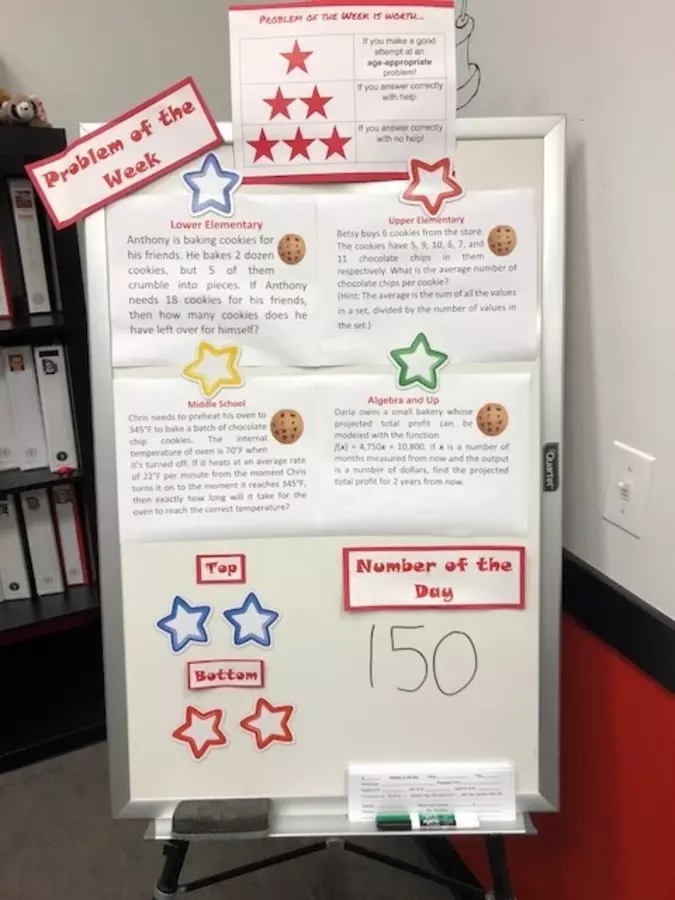 PROBLEM OF THE WEEK IS WORTH...
If you make a good
attempt at an
age-appropriate
problem!
If you answer correctly
with help.
If you answer correctly
with no help!
Problem of the
Week
Lower Elementary
Anthony is baking cookies for
his friends. He bakes 2 dozen
cookies, but 5 of them
crumble into pieces. If Anthony
needs 18 cookies for his friends,
then how many cookies does he
have left over for himself?
Upper Elementary
Betsy buys 6 cookies from the store.
The cookies have 5, 9, 10, 6, 7, and
11 chocolate chips in them
respectively. What is the average number of
chocolate chips per cookie?
(Hint: The average is the sum of all the values
in a set, divided by the number of values in
the set.)
Middle School
Chris needs to preheat his oven to
345°F to bake a batch of chocolate
chip cookies. The internal
temperature of oven is 70°F when
it's turned off. If it heats at an average rate
of 22°F per minute from the moment Chris
turns it on to the moment it reaches 345°F,
then exactly how long will it take for the
oven to reach the correct temperature?
Algebra and Up
Daria owns a small bakery whose
projected total profit can be
modeled with the function
f(x) = 4,750x + 10,800. If x is a number of
months measured from now and the output
is a number of dollars, find the projected
total profit for 2 years from now.
Quartet
Top
Bottom
Number of the
Day
150